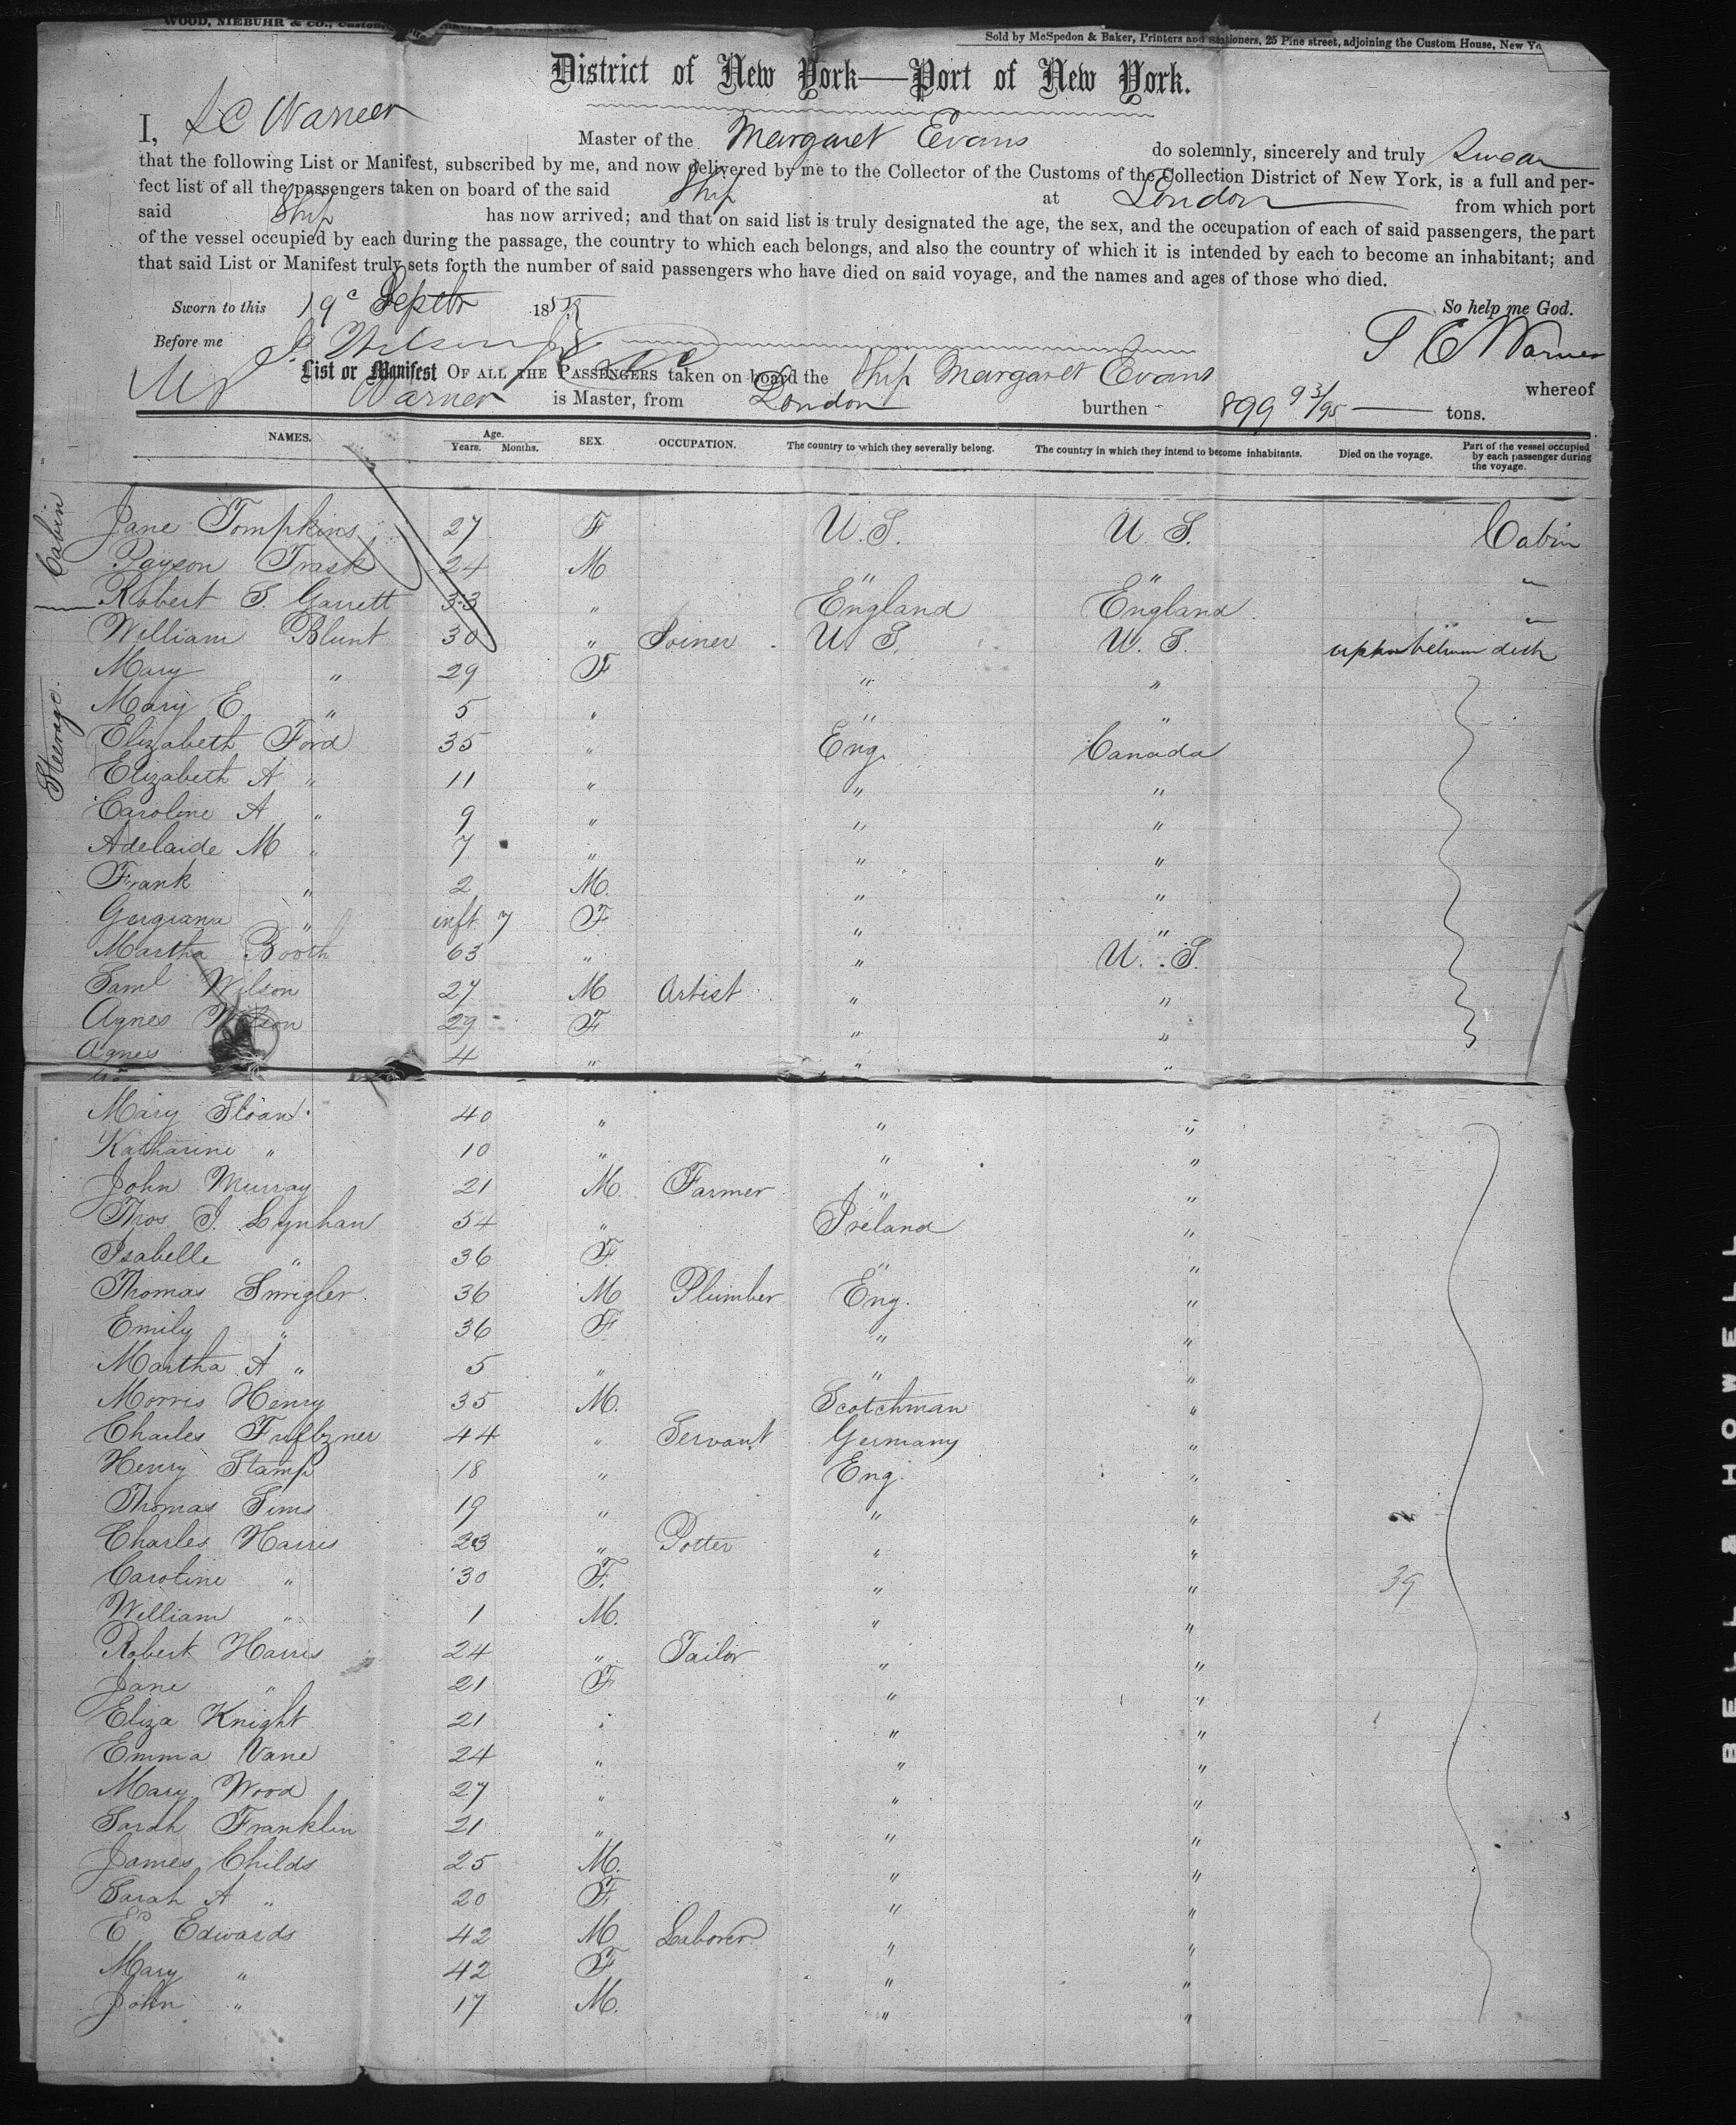 WOOD, NIEBUHR & CO., Custom
Sold by McSpedon & Baker, Printers and Stationers, 25 Pine street, adjoining the Custom House, New Yo
District of New York—Port of New York.
I, S C Warner Master of the Margaret Evans do solemnly, sincerely and truly Swear
that the following List or Manifest, subscribed by me, and now delivered by me to the Collector of the Customs of the Collection District of New York, is a full and per-
fect list of all the passengers taken on board of the said Ship at London from which port
said Ship has now arrived; and that on said list is truly designated the age, the sex, and the occupation of each of said passengers, the part
of the vessel occupied by each during the passage, the country to which each belongs, and also the country of which it is intended by each to become an inhabitant; and
that said List or Manifest truly sets forth the number of said passengers who have died on said voyage, and the names and ages of those who died.
Sworn to this 19 Septr 185 So help me God.
Before me J. Wilson C Warner
List or Manifest OF ALL THE PASSENGERS taken on board the Ship Margaret Evans whereof
Warner is Master, from London burthen 899 93/95 tons.
NAMES. Age. Years. Months. SEX. OCCUPATION. The country to which they severally belong. The country in which they intend to become inhabitants. Died on the voyage. Part of the vessel occupied by each passenger during the voyage.
Cabin
Jane Tompkins 27 F U.S. U.S. Cabin
Payson Trask 24 M " " "
Robert S. Garrett 33 " England England "
Steerage.
William Blunt 30 " Joiner U.S. U.S. upper between deck
Mary " 29 F " "
Mary E " 5 " " "
Elizabeth Ford 35 " Eng. Canada
Elizabeth A " 11 " " "
Caroline A " 9 " " "
Adelaide M " 7 " " "
Frank " 2 M. " "
Gergiana " inft 7 F " "
Martha Booth 63 " " U.S.
Saml Wilson 27 M Artist " "
Agnes Wilson 29 F " "
Agnes 4 " " "
Mary Sloan 40 " " "
Katharine " 10 " " "
John Murray 21 M. Farmer " "
Thos J. Lynhan 54 " Ireland "
Isabelle " 36 F. " "
Thomas Swigler 36 M Plumber Eng. "
Emily " 36 F " "
Martha A " 5 " " "
Morris Henry 35 M. Scotchman "
Charles 44 " Servant Germany "
Henry Stamp 18 " Eng. "
Thomas Sims 19 " " "
Charles Harris 23 " Potter " "
Caroline " 30 F. " " 39
William " 1 M. " "
Robert Harris 24 " Tailor " "
Jane " 21 F " "
Eliza Knight 21 " " "
Emma Vane 24 " " "
Mary Wood 27 " " "
Sarah Franklin 21 " " "
James Childs 25 M. " "
Sarah A " 20 F " "
Ed Edwards 42 M Laborer " "
Mary " 42 F " "
John " 17 M. " "
BELL & HOWELL